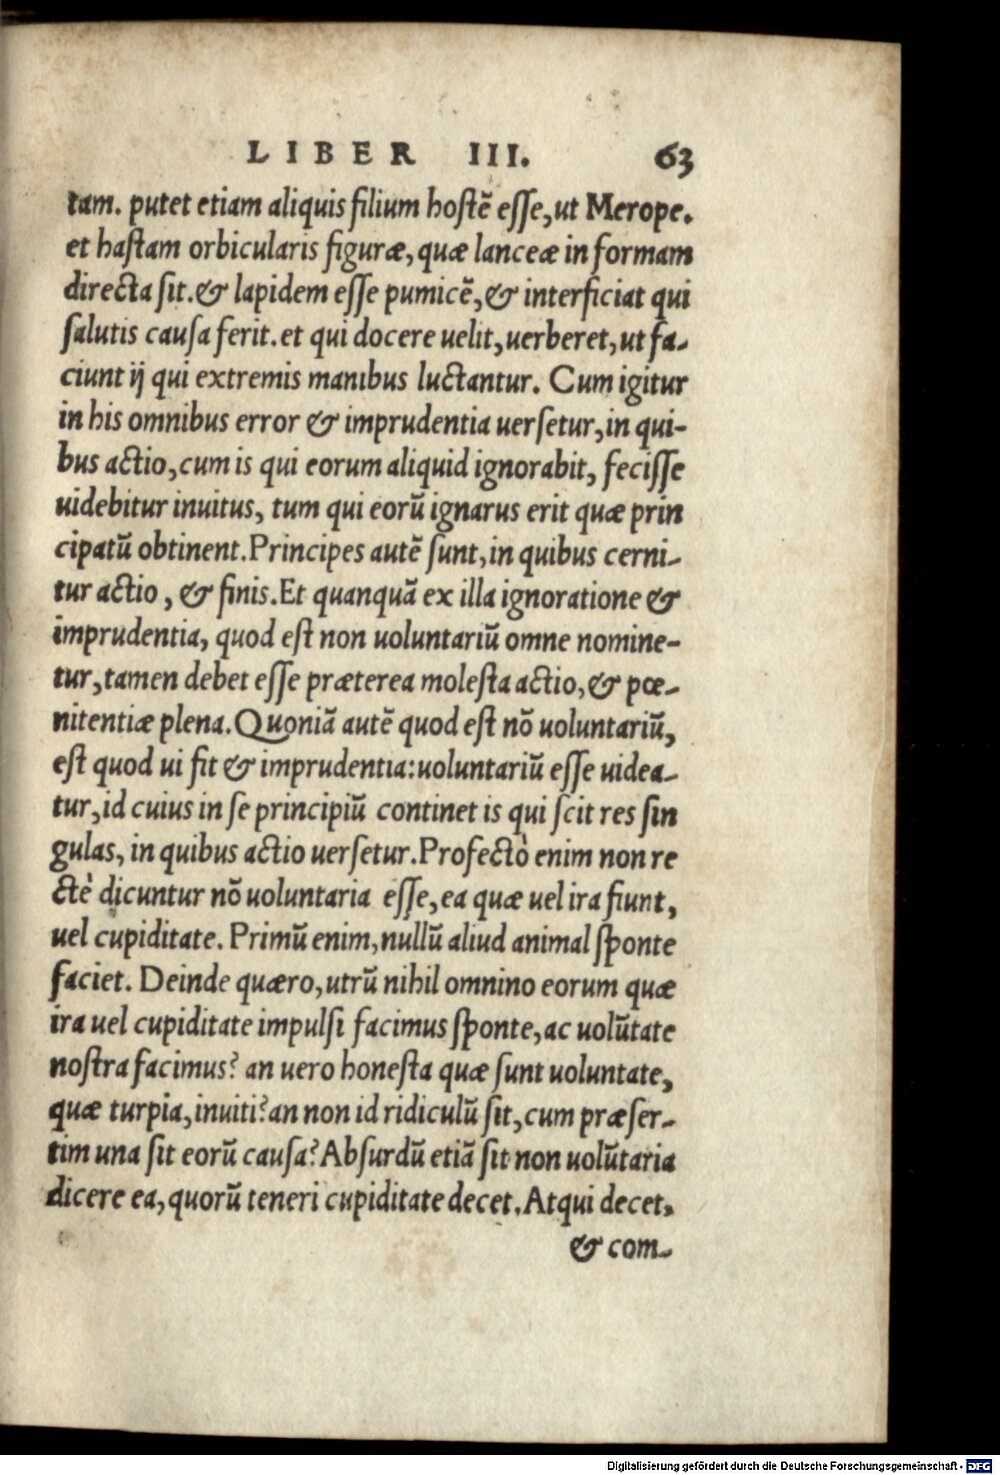 LIBER III. 63
tam. putet etiam aliquis filium hostē esse, ut Merope.
et hastam orbicularis figuræ, quæ lanceæ in formam
directa sit. & lapidem esse pumicē, & interficiat qui
salutis causa ferit. et qui docere uelit, uerberet, ut fa-
ciunt ij qui extremis manibus luctantur. Cum igitur
in his omnibus error & imprudentia uersetur, in qui-
bus actio, cum is qui eorum aliquid ignorabit, fecisse
uidebitur inuitus, tum qui eorū ignarus erit quæ prin
cipatū obtinent. Principes autē sunt, in quibus cerni-
tur actio, & finis. Et quanquā ex illa ignoratione &
imprudentia, quod est non uoluntariū omne nomine-
tur, tamen debet esse præterea molesta actio, & pœ-
nitentiæ plena. Quoniā autē quod est nō uoluntariū,
est quod ui fit & imprudentia: uoluntariū esse uidea-
tur, id cuius in se principiū continet is qui scit res sin
gulas, in quibus actio uersetur. Profectò enim non re
ctè dicuntur nō uoluntaria esse, ea quæ uel ira fiunt,
uel cupiditate. Primū enim, nullū aliud animal sponte
faciet. Deinde quæro, utrū nihil omnino eorum quæ
ira uel cupiditate impulsi facimus sponte, ac uolūtate
nostra facimus? an uero honesta quæ sunt uoluntate,
quæ turpia, inuiti? an non id ridiculū sit, cum præser-
tim una sit eorū causa? Absurdū etiā sit non uolūtaria
dicere ea, quorū teneri cupiditate decet. Atqui decet,
& com-
Digitalisierung gefördert durch die Deutsche Forschungsgemeinschaft - DFG